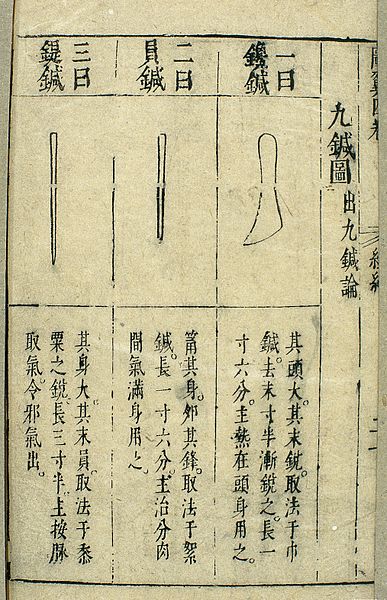 九鍼圖 出九鍼論
一曰
鑱鍼
其頭大。其末銳。取法于巾
鍼。去末寸半漸銳之。長一
寸六分。主熱在頭身用之。
二曰
員鍼
筩其身。卵其鋒。取法于絮
鍼。長一寸六分。主治分肉
間氣滿身用之。
三曰
鍉鍼
其身大。其末員。取法于黍
粟之銳。長三寸半。主按脉
取氣。令邪氣出。